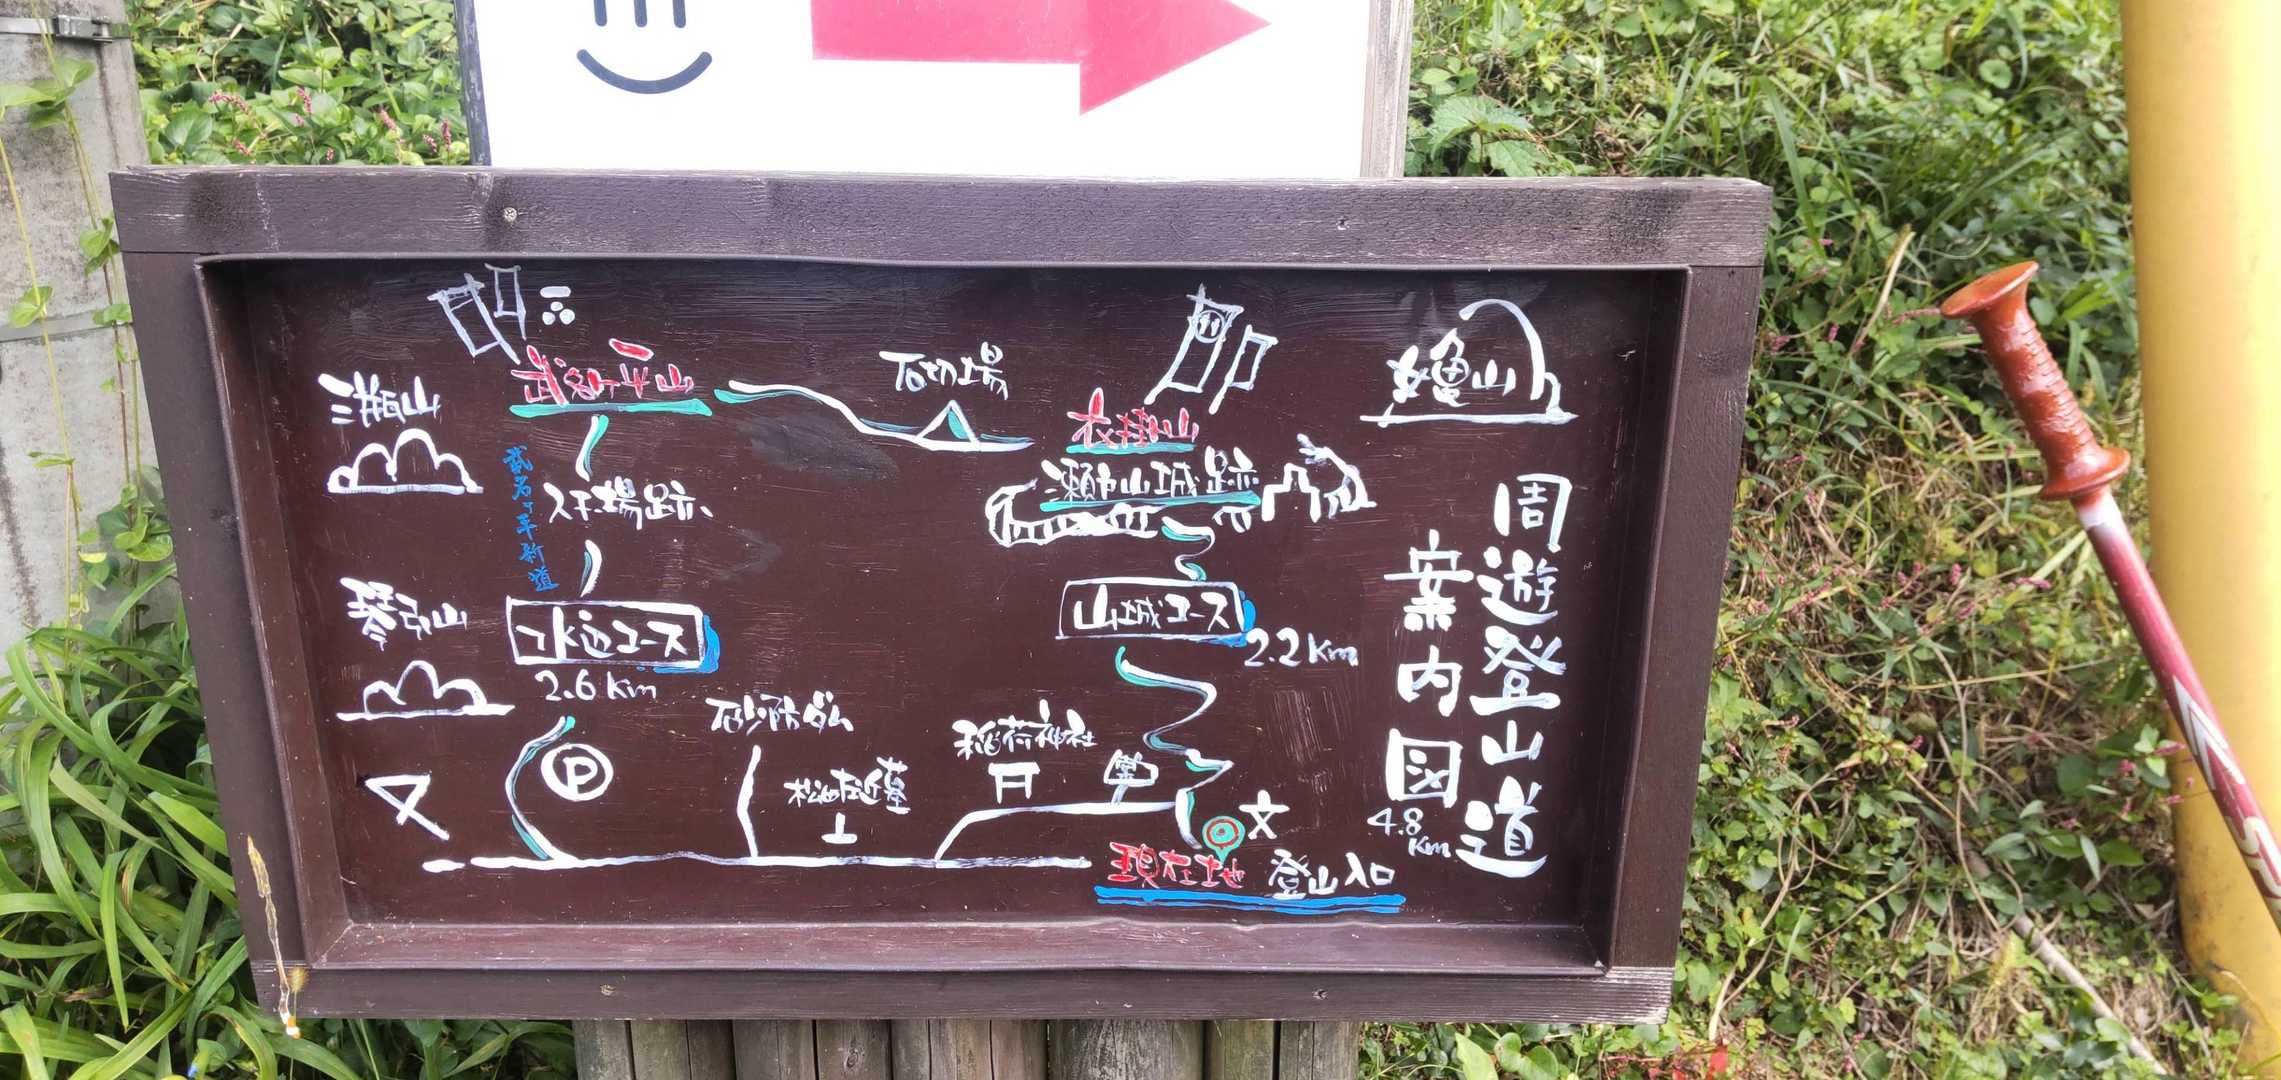 周遊登山道
案内図
4.8km
女亀山
衣掛山
瀬戸山城跡
山城コース
2.2km
石切場
武名ヶ平山
三瓶山
武名ヶ平新道
琴引山
水辺コース
2.6km
P
砂防ダム
稲荷神社
文
現在地 登山入口